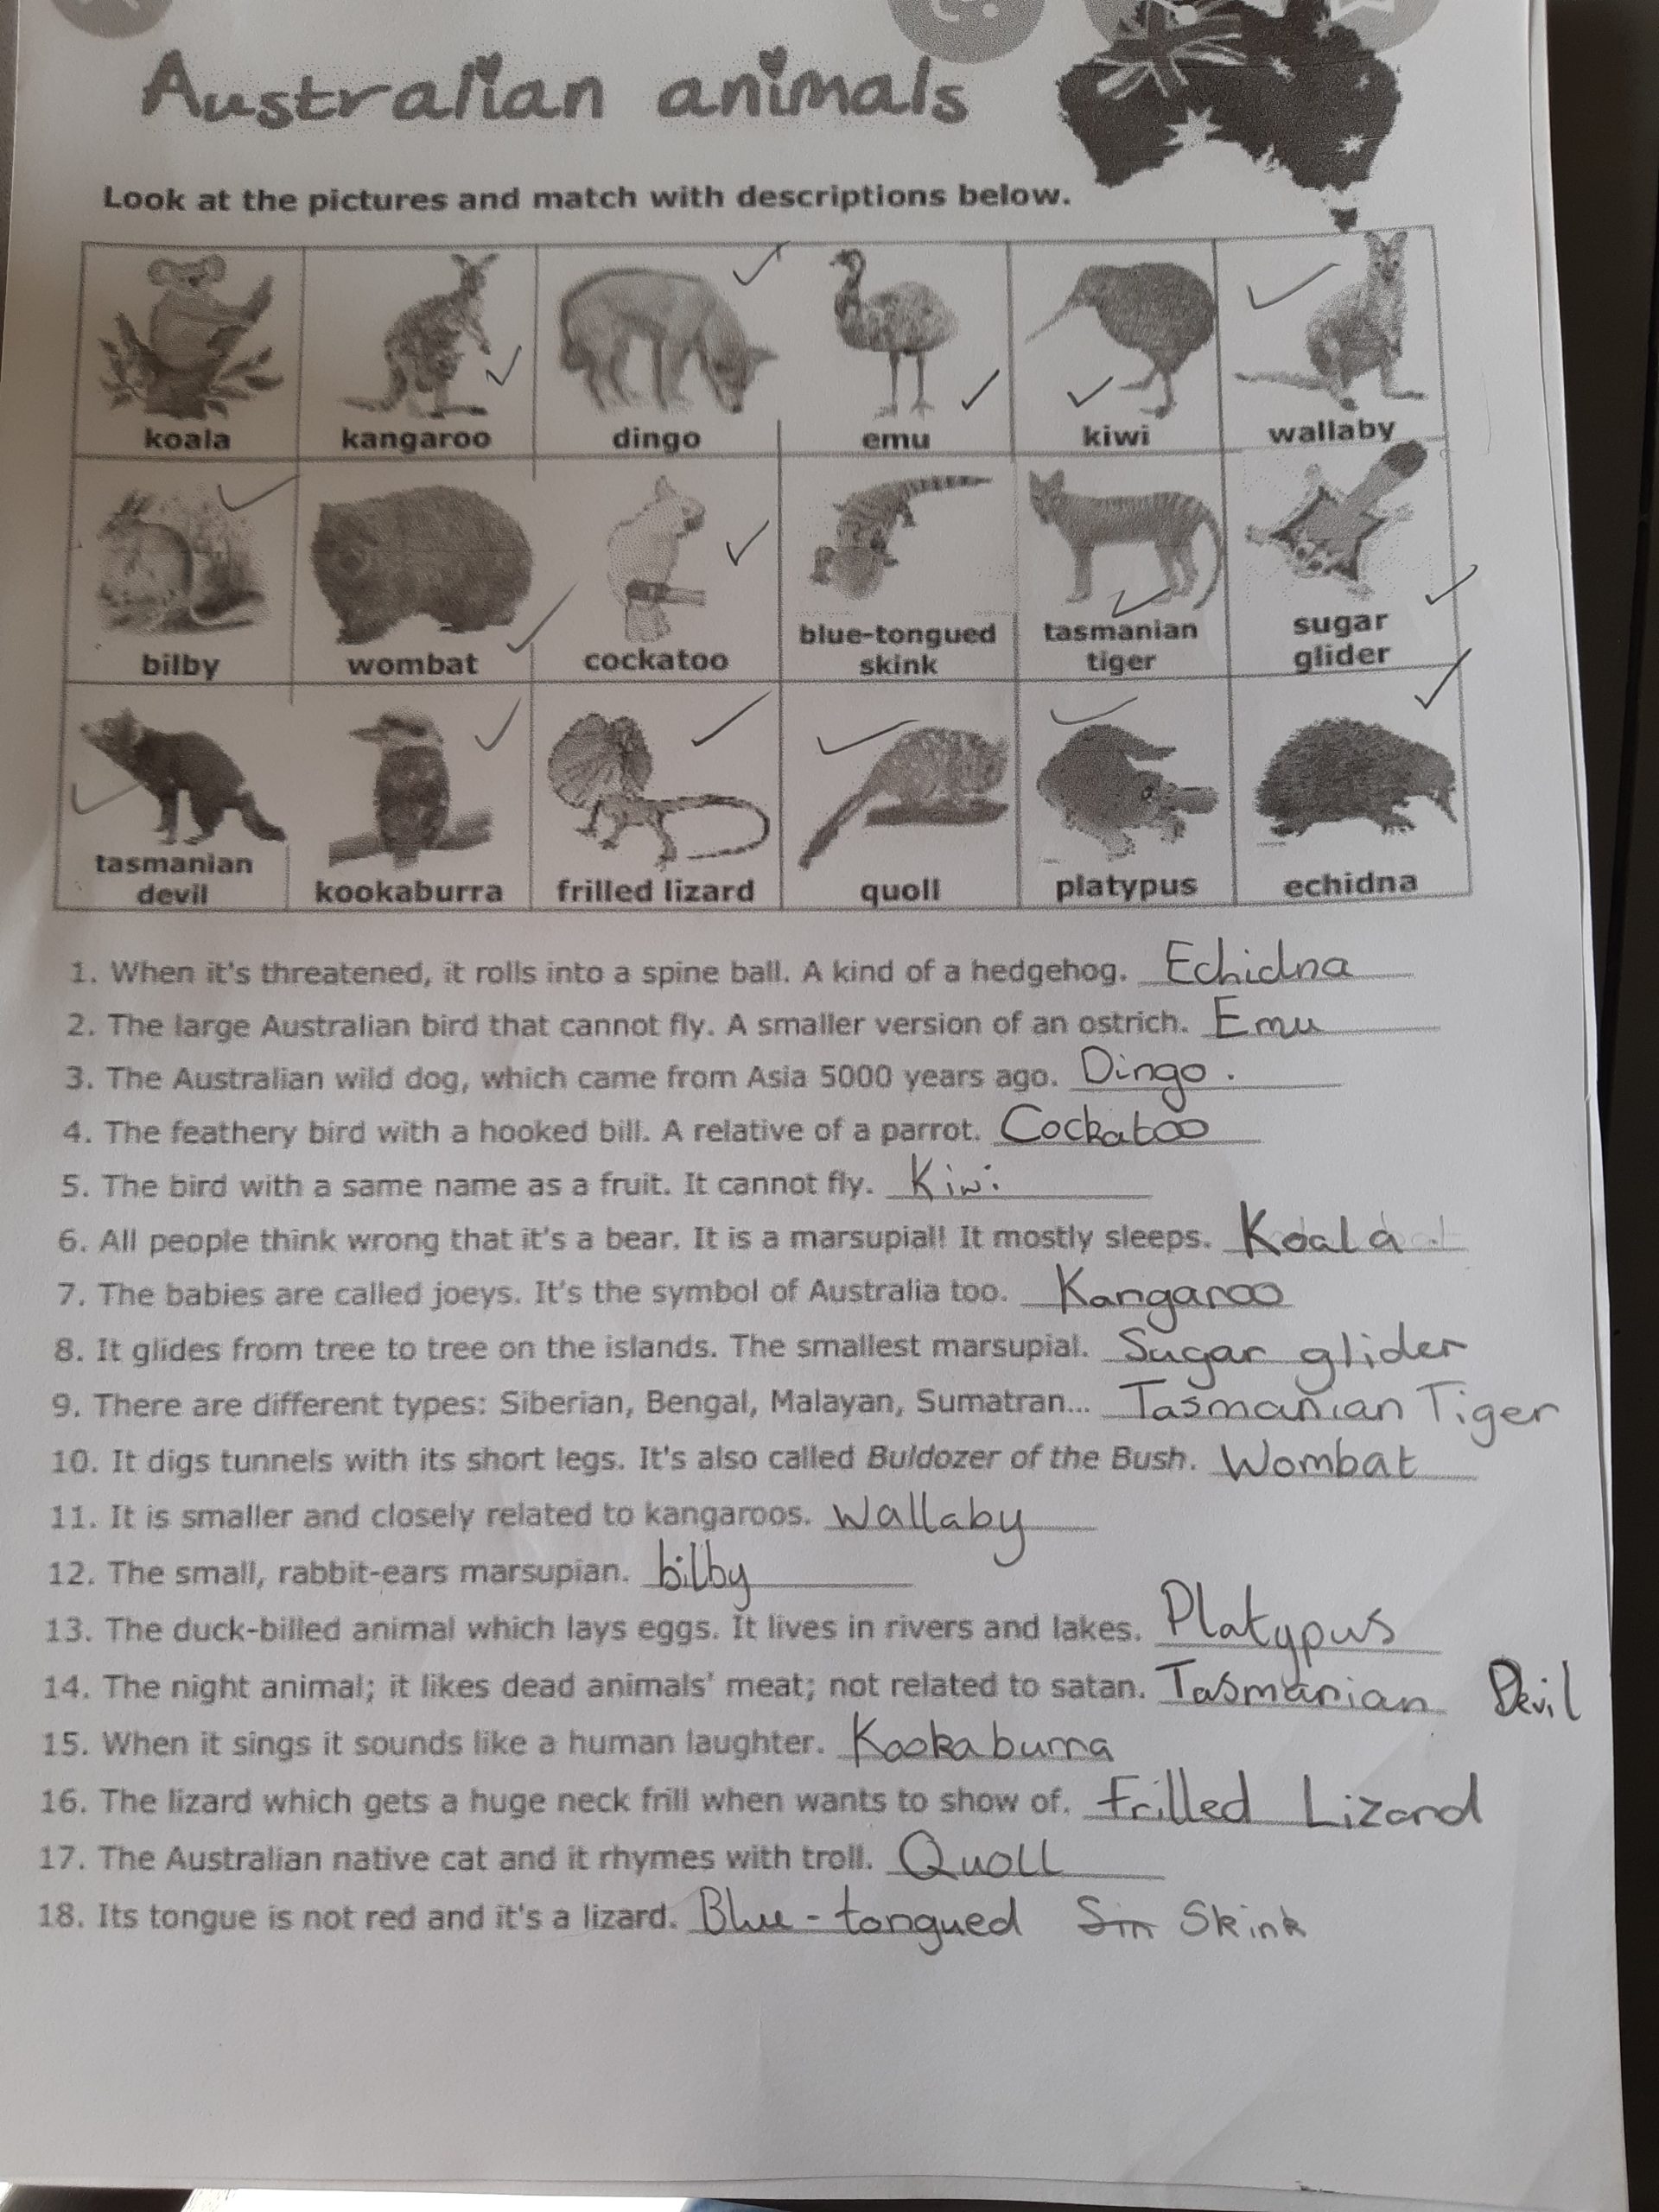 Australian animals
Look at the pictures and match with descriptions below.
koala kangaroo dingo emu kiwi wallaby
bilby wombat cockatoo blue-tongued skink tasmanian tiger sugar glider
tasmanian devil kookaburra frilled lizard quoll platypus echidna
1. When it's threatened, it rolls into a spine ball. A kind of a hedgehog. Echidna
2. The large Australian bird that cannot fly. A smaller version of an ostrich. Emu
3. The Australian wild dog, which came from Asia 5000 years ago. Dingo.
4. The feathery bird with a hooked bill. A relative of a parrot. Cockatoo
5. The bird with a same name as a fruit. It cannot fly. Kiwi
6. All people think wrong that it's a bear. It is a marsupial! It mostly sleeps. Koala
7. The babies are called joeys. It's the symbol of Australia too. Kangaroo
8. It glides from tree to tree on the islands. The smallest marsupial. Sugar glider
9. There are different types: Siberian, Bengal, Malayan, Sumatran... Tasmanian Tiger
10. It digs tunnels with its short legs. It's also called Buldozer of the Bush. Wombat
11. It is smaller and closely related to kangaroos. Wallaby
12. The small, rabbit-ears marsupian. bilby
13. The duck-billed animal which lays eggs. It lives in rivers and lakes. Platypus
14. The night animal; it likes dead animals' meat; not related to satan. Tasmanian Devil
15. When it sings it sounds like a human laughter. Kookaburra
16. The lizard which gets a huge neck frill when wants to show of. Frilled Lizard
17. The Australian native cat and it rhymes with troll. Quoll
18. Its tongue is not red and it's a lizard. Blue-tongued Skink